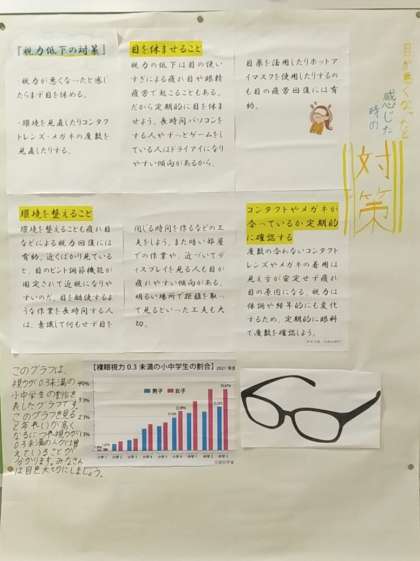 目が悪くなったと
感じた
時の
対策
『視力低下の対策』
視力が悪くなったと感じ
たらまず目を休める。
・環境を見直したりコンタク
トレンズ・メガネの度数を
見直したりする。
目を休ませること
視力の低下は目の使い
すぎによる疲れ目や眼精
疲労で起こることもある。
だから定期的に目を休ま
せよう。長時間パソコンを
する人やずっとゲームをし
ている人はドライアイになり
やすい傾向があるから、
目薬を活用したりホットア
イマスクを使用したりするの
も目の疲労回復には有
効。
環境を整えること
環境を整えることも疲れ目
などによる視力回復には
有効。近くばかり見ている
と、目のピント調節機能が
固定されて近視になりや
すいのだ。目を酷使するよ
うな作業を長時間する人
は、意識して何もせず目を
閉じる時間を作るなどの工
夫をしよう。また暗い部屋
での作業や、近づいてデ
ィスプレイを見る人も目が
疲れやすい傾向がある。
明るい場所で距離を取っ
て見るといった工夫も大
切。
コンタクトやメガネが
合っているか定期的
に確認する
度数の合わないコンタクト
レンズやメガネの着用は
見え方が安定せず疲れ
目の原因になる。視力は
体調や経年的にも変化
するため、定期的に眼科
で度数を確認しよう。
このグラフは、
視力が0.3未満の
小中学生の割合を
表したグラフです。
このグラフを見る
と学年が高く
なるにつれ視力が
0.3未満の人が増
えていることが
分かります。みなさん
は目を大切にしましょう。
【裸眼視力0.3未満の小中学生の割合】
2021年度
男子 女子